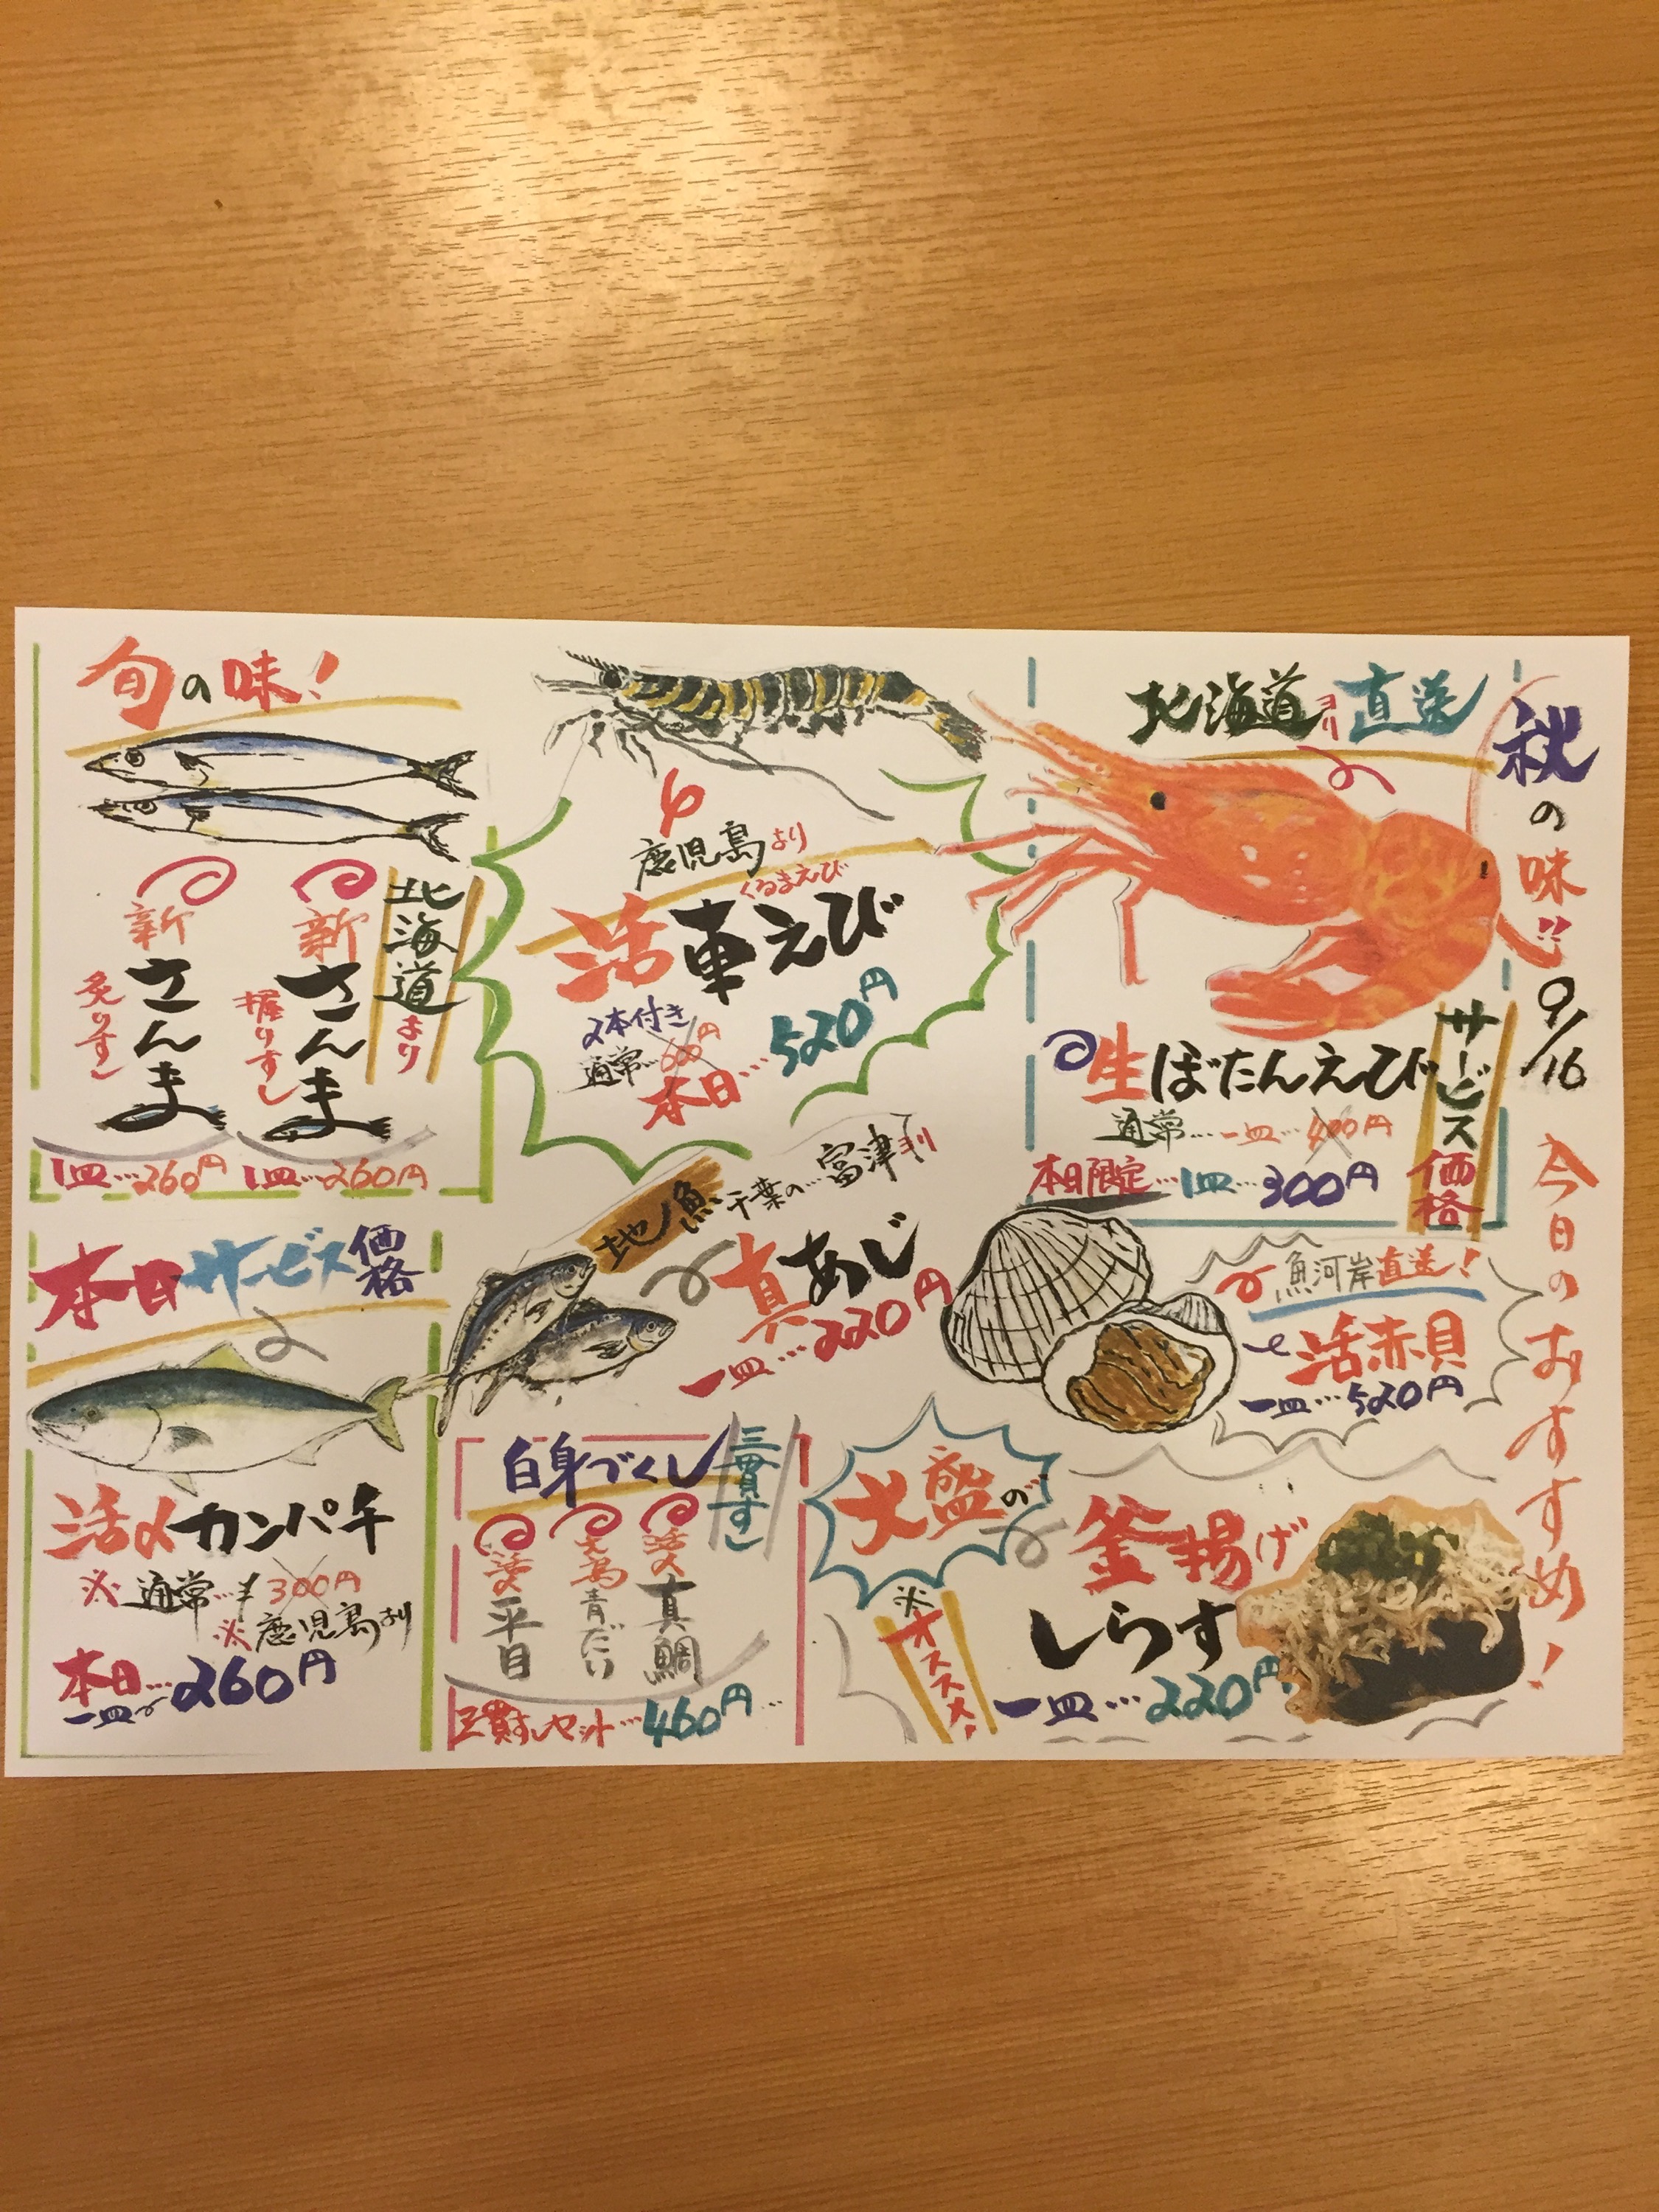 秋の味!! 9/16 今日のおすすめ!
北海道より直送
サービス価格
生ぼたんえび
通常…一皿…400円
本日限定…1皿…300円
鹿児島より
くるまえび
活車えび
2本付き
通常…600円
本日…520円
旬の味!
北海道より
新さんま
握りすし
1皿…260円
新さんま
炙りすし
1皿…260円
魚河岸直送!
活赤貝
一皿…520円
地魚
千葉の…富津より
真あじ
一皿…220円
本日サービス価格
活〆カンパチ
※通常…300円
※鹿児島より
本日…
一皿で260円
大盛の
釜揚げ
しらす
※オススメ
一皿…220円
白身づくし
三貫すし
活〆真鯛
青だい
平目
三貫すしセット…460円…